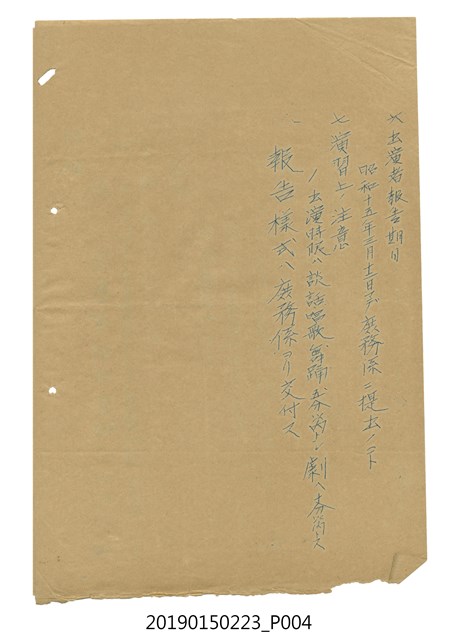 六、出演者報告期日
昭和十五年三月十二日マデ庶務係ニ提出ノコト
七、演習上ノ注意
1 出演時限ハ談話唱歌舞踊五分
劇八
一、報告様式ハ庶務係ヨリ交付ス
20190150223_P004